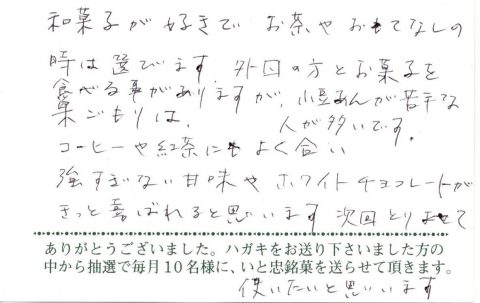 和菓子が好きで お茶や おもてなしの
時は選びます. 外国の方とお菓子を
食べる事がありますが、小豆あんが苦手な
巣ごもりは、 人が多いです.
コーヒーや紅茶にもよく合い
強すぎない甘味や ホワイトチョコレートが
きっと喜ばれると思います 次回とりよせて
ありがとうございました。ハガキをお送り下さいました方の
中から抽選で毎月10名様に、いと忠銘菓を送らせて頂きます。
使いたいと思います